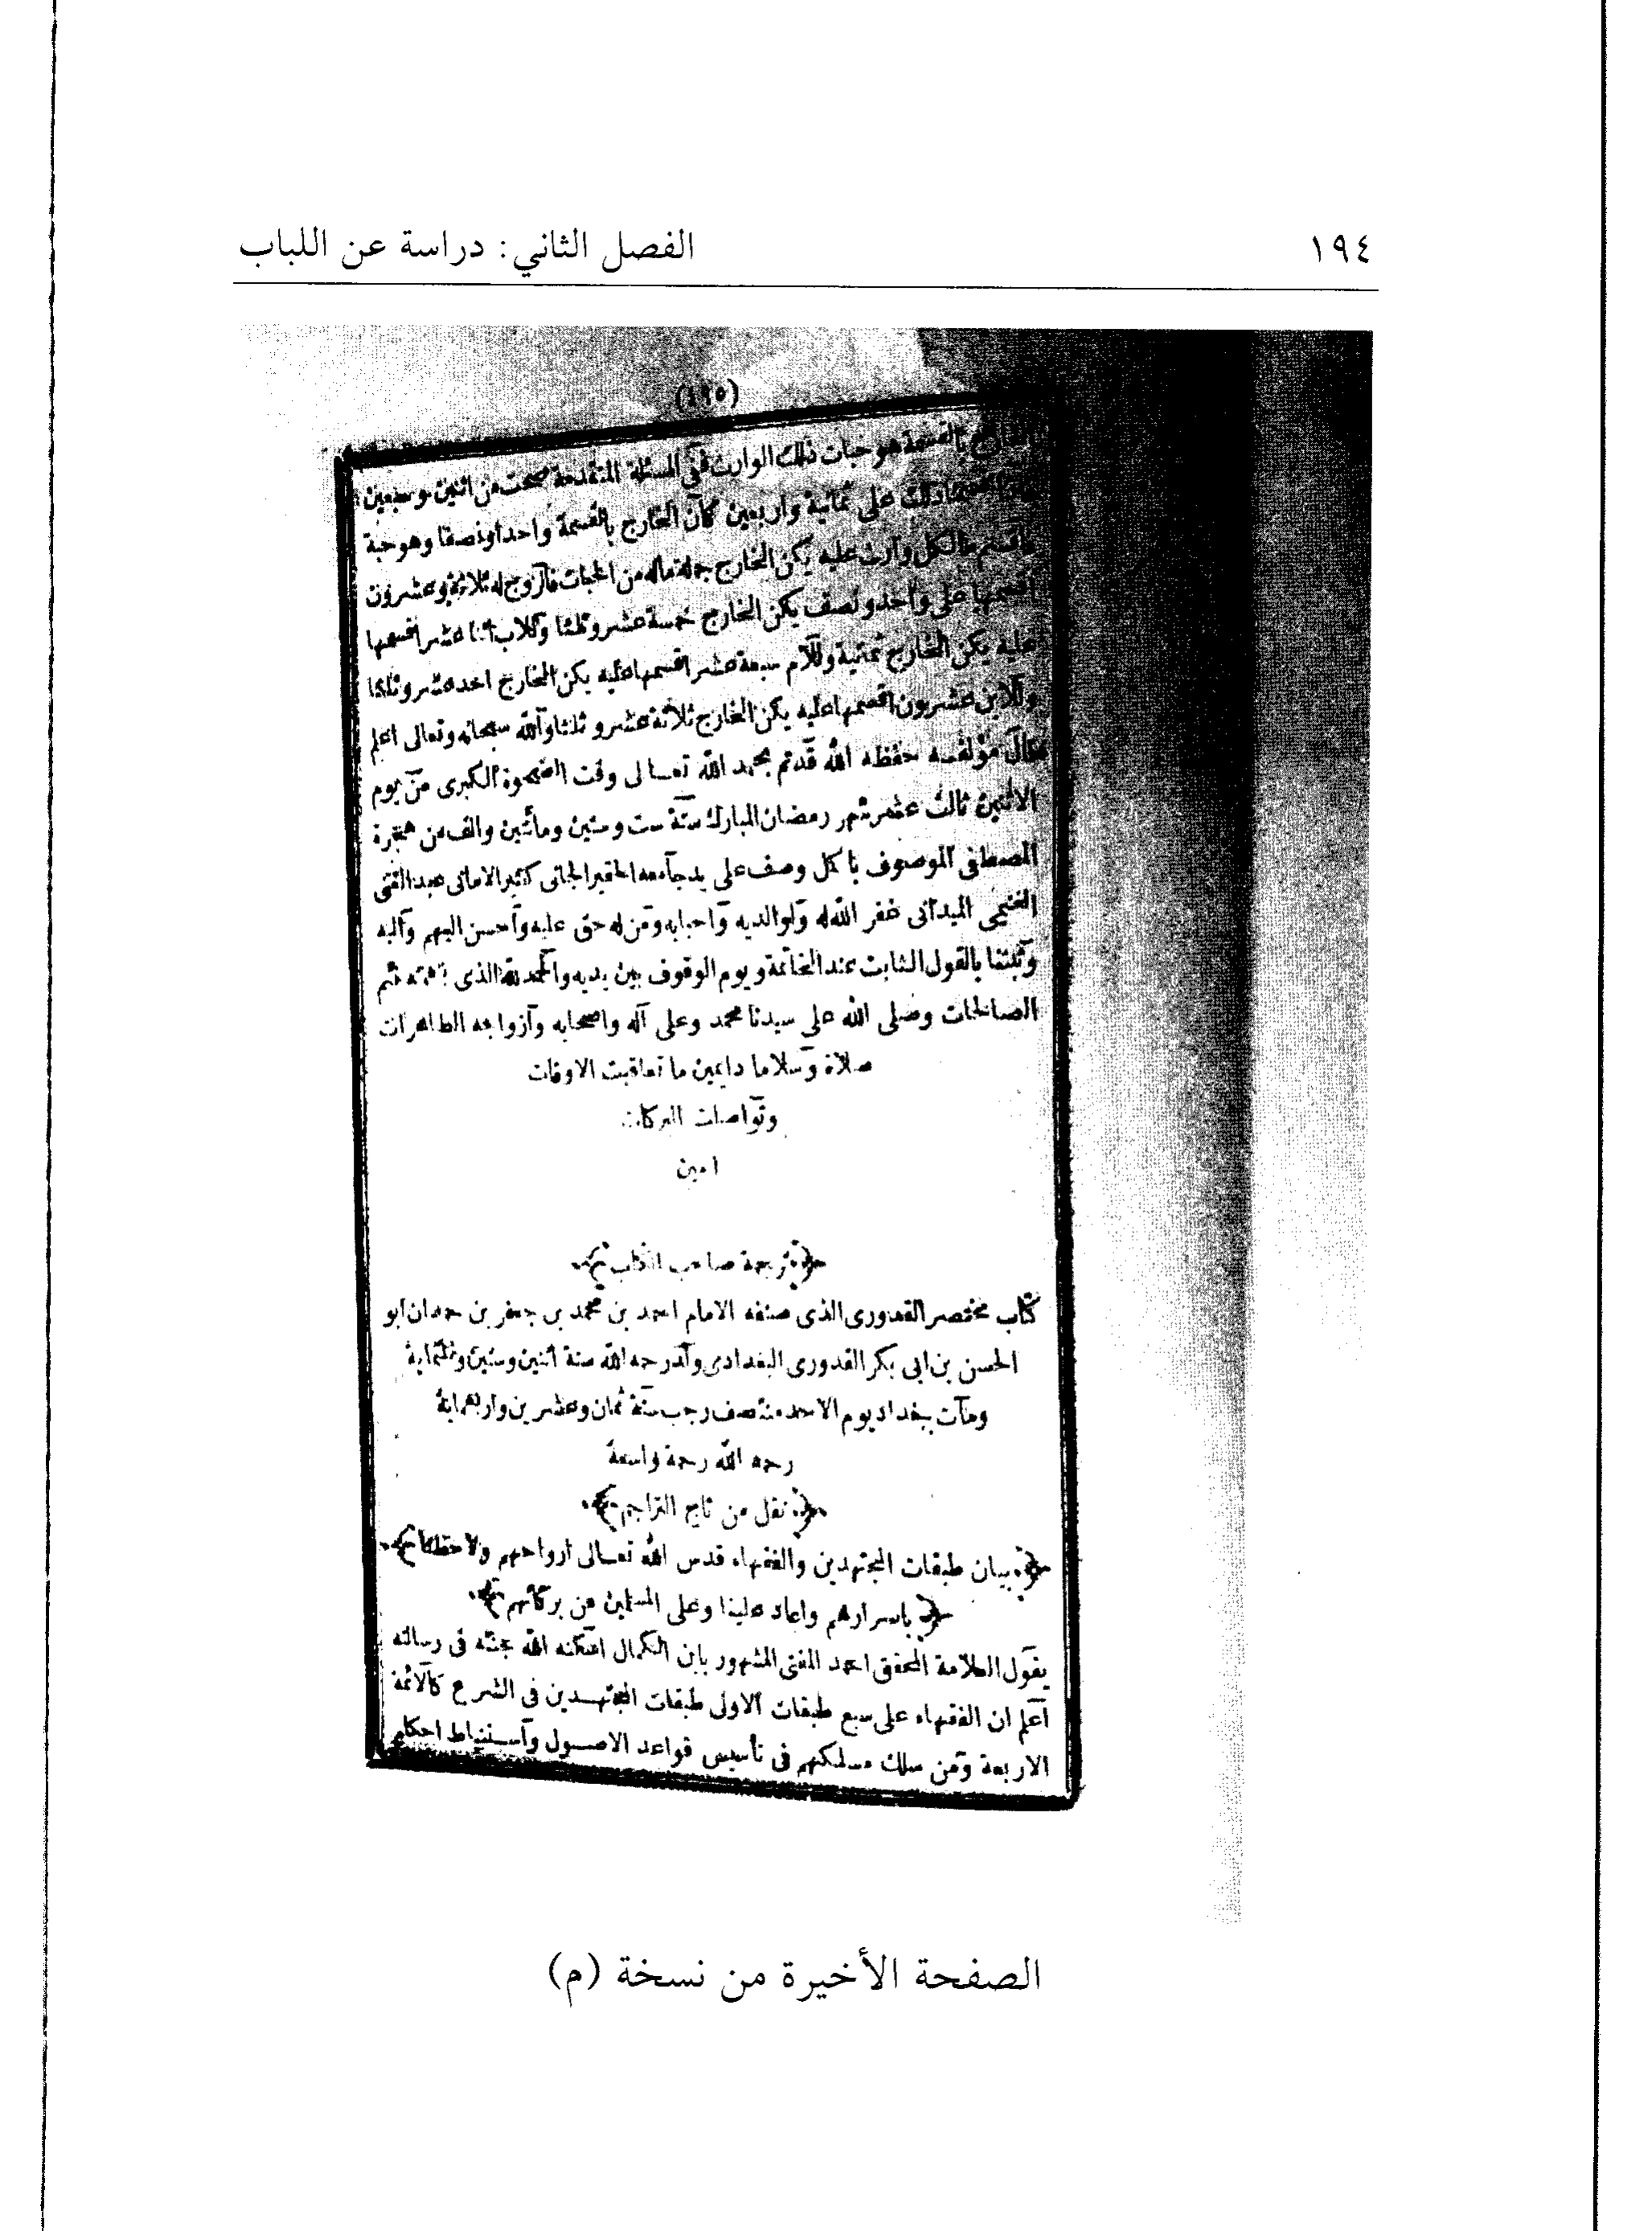 ١٩٤
الفصل الثاني: دراسة عن اللباب
(١٩٥)
بالقسمة هو حبات ذلك الوارث ففي المسئلة المتقدمة صحت من اثنين وسبعين
ذلك على ثمانية واربعين كان الخارج بالقسمة واحدا ونصفا وهو حبة
لكل وارث عليه يكن الخارج جملة ماله من الحبات فللزوج له ثلاثة وعشرون
اقسمها على واحد ونصف يكن الخارج خمسة عشر وثلثا وللاب اثنا عشر اقسمها
عليه يكن الخارج ثمانية وللام سبعة عشر اقسمها عليه يكن الخارج احد عشر وثلثا
وللابن عشرون اقسمها عليه يكن الخارج ثلاثة عشر وثلثا والله سبحانه وتعالى اعلم
قال مؤلفه حفظه الله قد تم بحمد الله تعالى وقت الضحوة الكبرى من يوم
الاثنين ثالث عشر شهر رمضان المبارك سنة ست وستين ومأتين والف من هجرة
المصطفى الموصوف باكمل وصف على يد جامعه الحقير الجانى كثير الامانى عبد الغنى
الغنيمى الميدانى غفر الله له ولوالديه واحبابه ومن له حق عليه واحسن اليهم واليه
وثبتنا بالقول الثابت عند الخاتمة ويوم الوقوف بين يديه والحمد لله الذى بنعمته تتم
الصالحات وصلى الله على سيدنا محمد وعلى آله واصحابه وازواجه الطاهرات
صلاة وسلاما دايمين ما تعاقبت الاوقات
وتواصلت البركات
امين
﴿ترجمة صاحب الكتاب﴾
كتاب مختصر القدورى الذى صنفه الامام احمد بن محمد بن جعفر بن حمدان ابو
الحسن بن ابى بكر القدورى البغدادى ولد رحمه الله سنة اثنين وستين وثلثماية
ومات ببغداد يوم الاحد منتصف رجب سنة ثمان وعشرين واربعماية
رحمه الله رحمة واسعة
﴿نقل من تاج التراجم﴾
﴿بيان طبقات المجتهدين والفقهاء قدس الله تعالى ارواحهم ولاحظنا﴾
﴿باسرارهم واعاد علينا وعلى المسلمين من بركاتهم﴾
يقول العلامة المحقق احمد المفتى المشهور بابن الكمال اسكنه الله جنته فى رسالته
اعلم ان الفقهاء على سبع طبقات الاولى طبقات المجتهدين فى الشرع كالائمة
الاربعة ومن سلك مسلكهم فى تأسيس قواعد الاصول واستنباط احكام
الصفحة الأخيرة من نسخة (م)